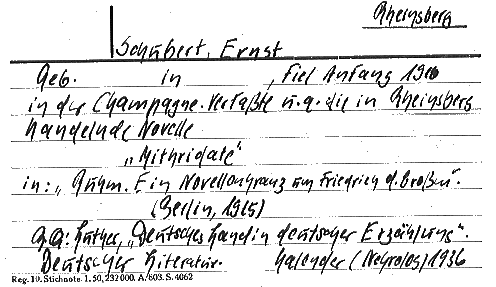 Rheinsberg
Schubert, Ernst
Geb. in , fiel Anfang
in der Champagne. Verfaßte u.a. die in Rheinsberg
handelnde Novelle
„Mithridate“
in: „Ruhm. Ein Novellenkranz um Friedrich d. Großen“.
(Berlin, 1915)
Luther, „Deutsches Land in deutscher Erzählung“.
Deutscher Literatur- Kalender (Nekrolog) 1936
Reg. 10. Stichnote. 1. 50, 232000. A/603. S. 4062